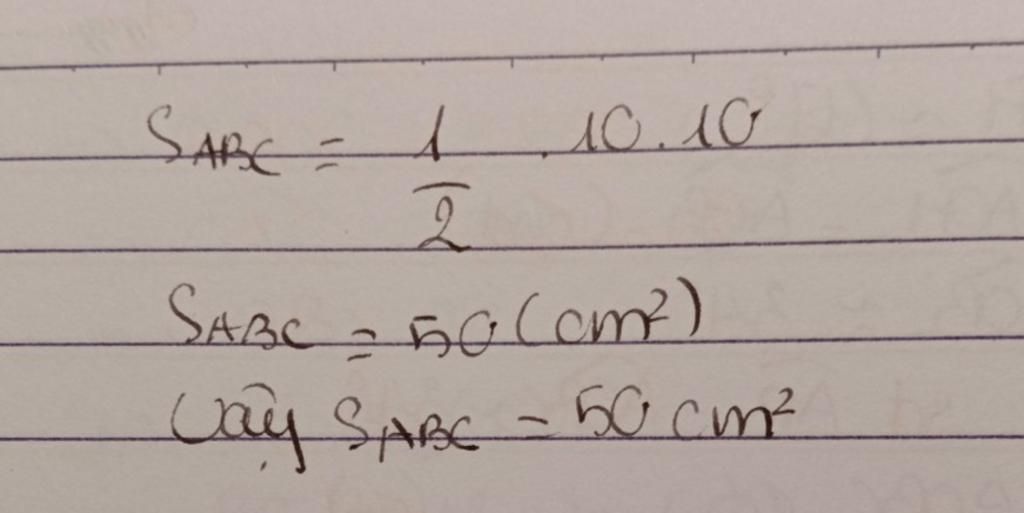 S_ABC = 1/2 . 10 . 10
S_ABC = 50 (cm²)
Vậy S_ABC = 50 cm²